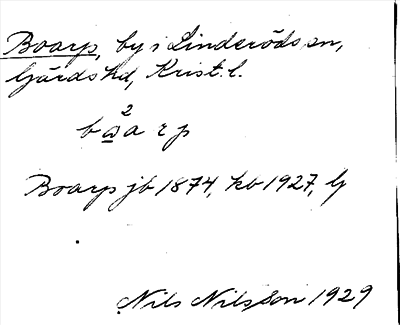 Boarp, by i Linderöds sn,
Gärds hd, Krist. l.
2
b o a r p
Boarp jb 1874, kb 1927, G
Nils Nilsson 1929